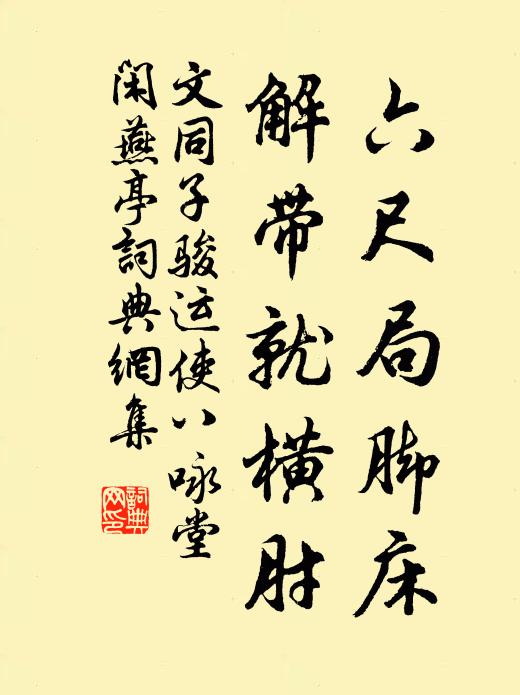 六尺局脚床
解带就横肘
文同子骏运使八咏堂
闲燕亭詞典網集
詞典网印